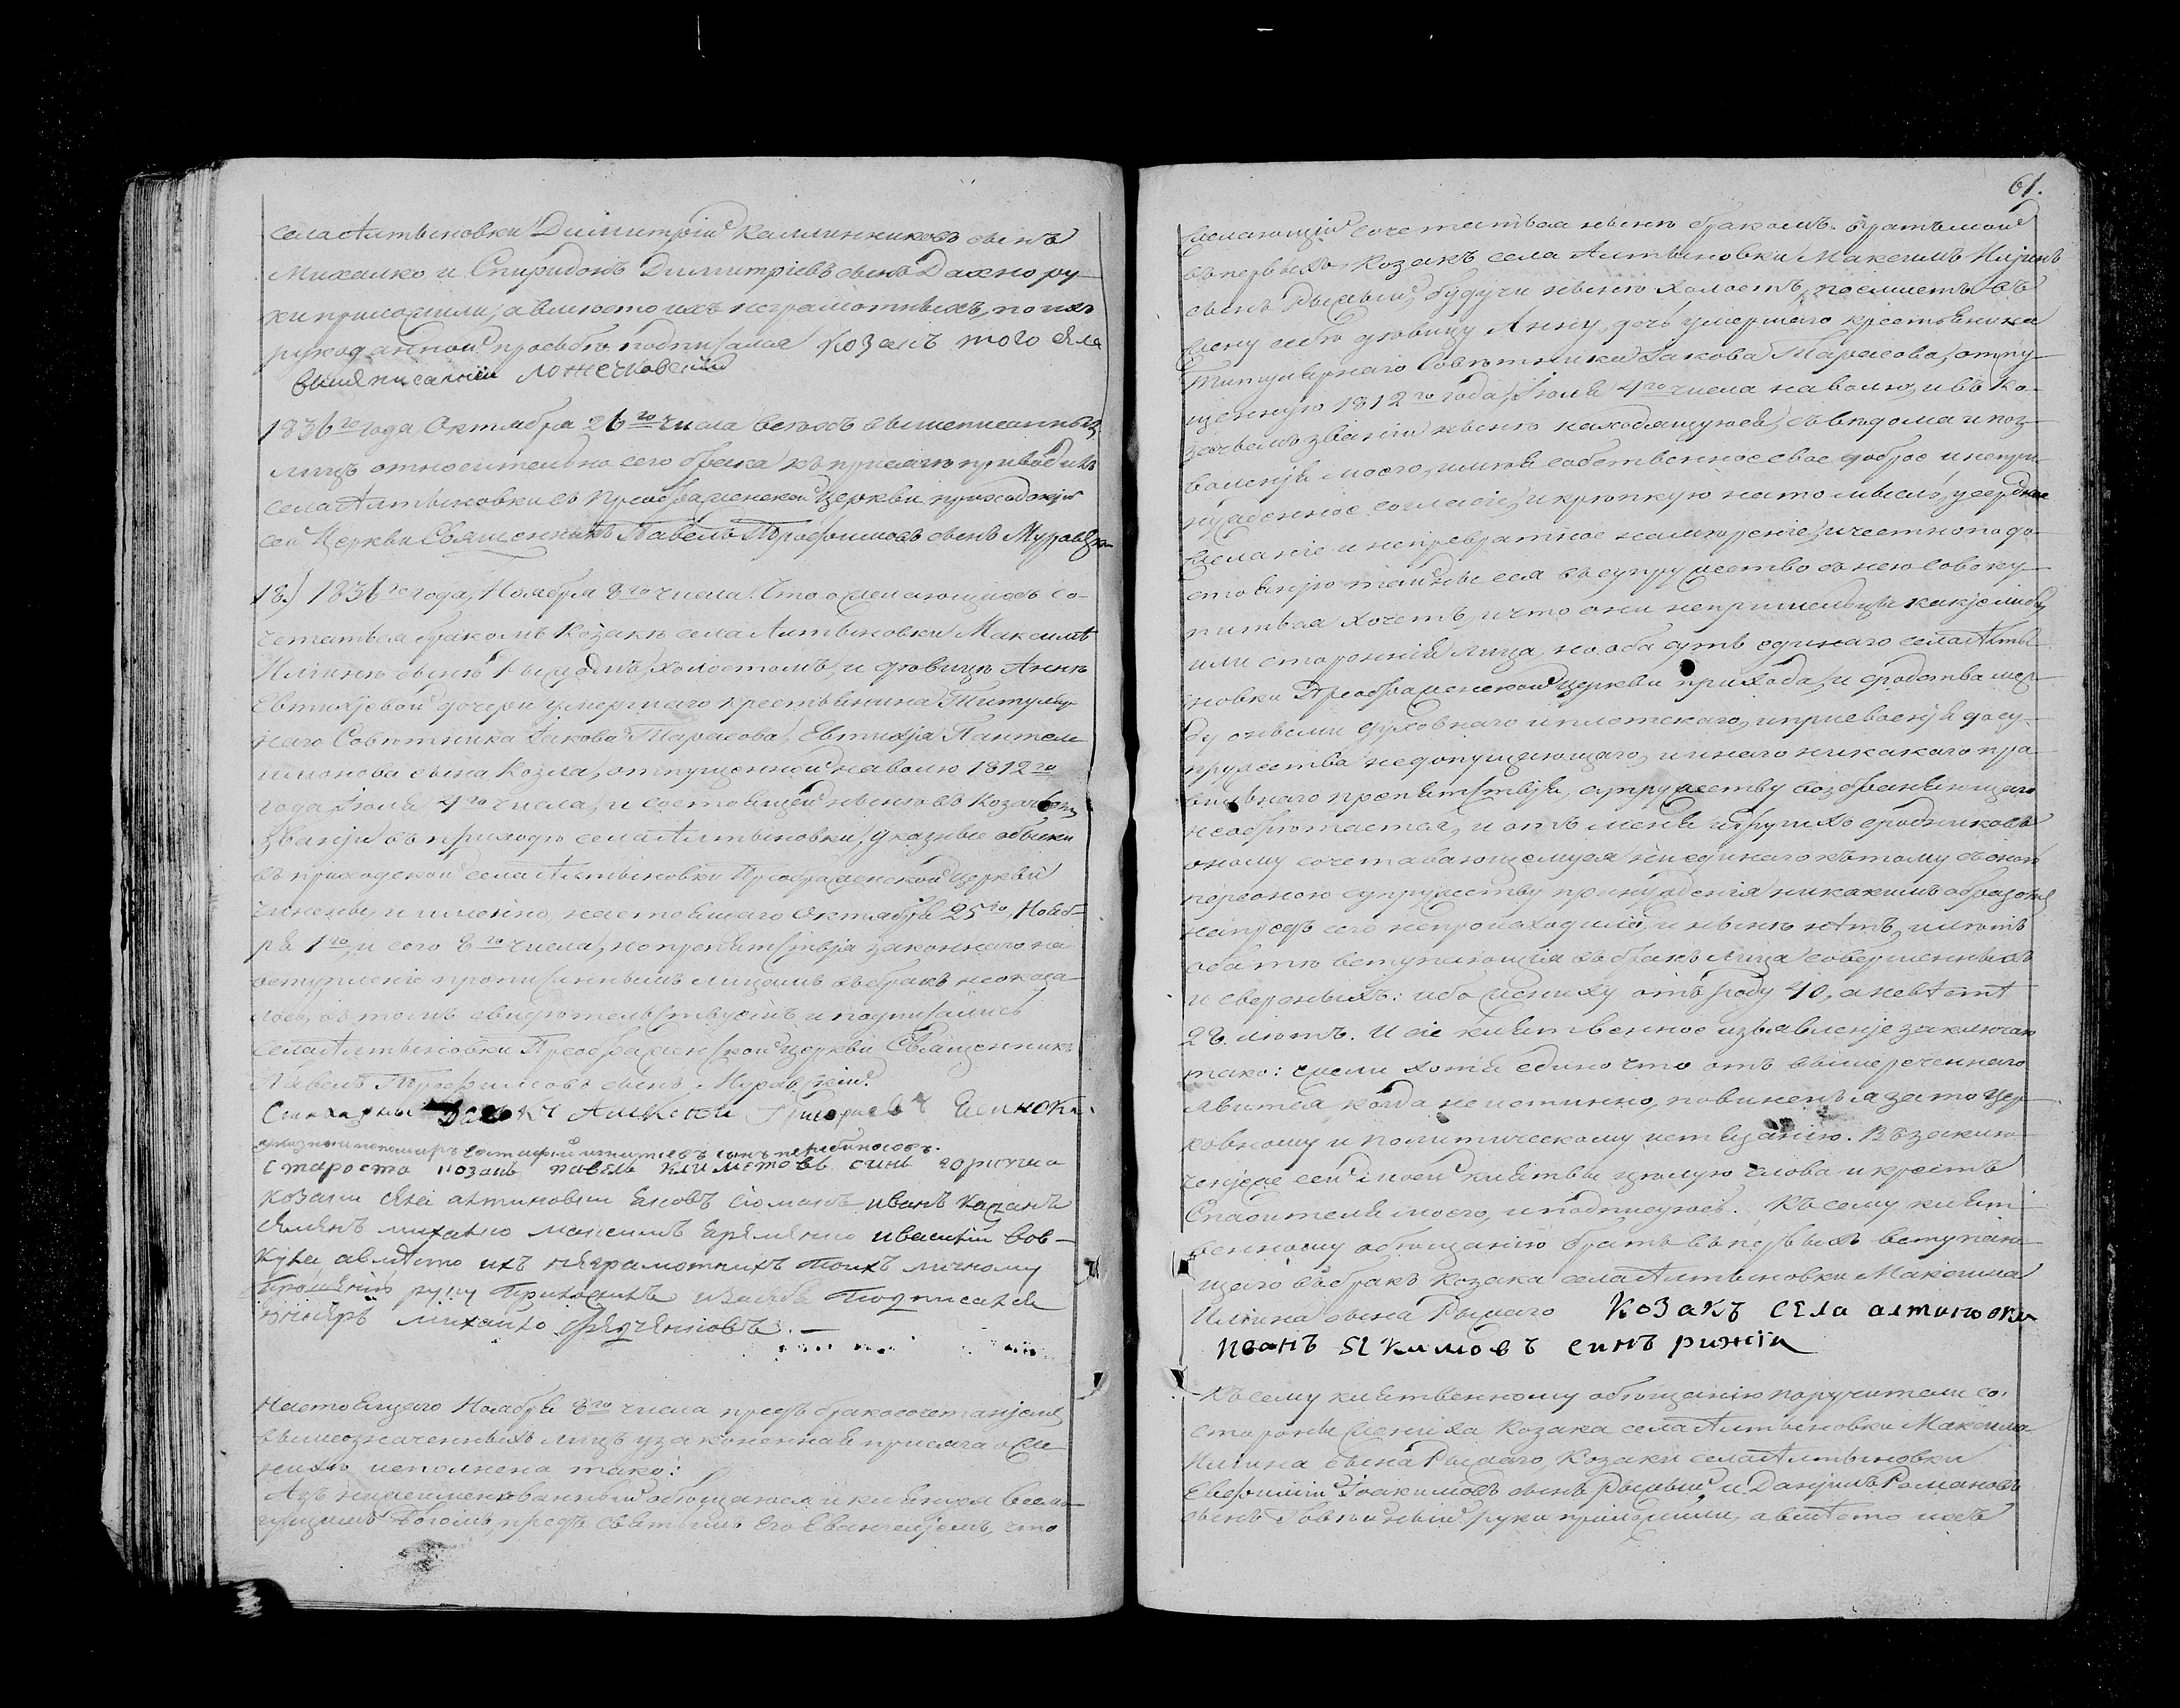 села Алтыновки Димитрій Каллинниковъ сынъ
Михалко и Спиридонъ Димитріевъ сынъ Дахно ру-
ки приложили, а вмѣсто ихъ неграмотныхъ, по ихъ
рукоданной прозьбѣ подписался козакъ того села
вишеписаній
1836го года, Октября 26го числа всѣхъ вышеписанныхъ
лицъ относительно сего брака къ присягѣ приводилъ
села Алтыновки въ Преображенской церкви приходскій
сей Церкви Священникъ Павелъ Трофимовъ сынъ
18.) 1836го года, Ноября 8го числа. Что о желающихъ со-
четаться бракомъ Козакѣ села Алтыновки Максимѣ
Иліинѣ сынѣ Рыжомъ, холостомъ, и дѣвицѣ Аннѣ
Евтихіевой дочери умершаго крестьянина Титуляр-
наго Совѣтника Іакова Тарасова, Евтихія Пантелеи-
имонова сына Козла, отпущенной на волю 1812го
года Іюля 4го числа, и состоящей нынѣ въ Козачемъ
званіи въ приходѣ села Алтыновки, указные обыски
въ приходской села Алтыновки Преображенской церкви
чинены, и именно настоящаго Октября 25го, Нояб-
ря 1го, и сего 8го числа, но препятствія законнаго на
вступленіе прописаннымъ лицамъ въ бракъ не оказа-
лось, въ томъ свидѣтельствуемъ и подписались
села Алтыновки Преображенской церкви Священникъ
Павелъ Трофимовъ сынъ
Григориевъ
староста козакъ павелъ сынъ
козаки села алтиновки иванъ
михалко максимъ
а вмѣсто ихъ неграмотнихъ по ихъ личному
прошенію руку приложилъ подписался
михаило
Настоящаго Ноября 8го числа предъ бракосочетаніемъ
вышеозначенныхъ лицъ узаконенная присяга о же-
нихѣ исполнена тако:
Азъ нижеименованный обѣщаюся и кленуся всемо-
гущимъ Богомъ, предъ святымъ Его Евангеліемъ, что
61.
желающій сочетаться нынѣ бракомъ братъ мой
въ первыхъ Козакъ села Алтыновки Максимъ Иліинъ
сынъ Рыжый, будучи нынѣ холостъ, поемлетъ въ
жену себѣ дѣвицу Анну, дочь умершаго крестьянина
Титулярнаго Совѣтника Іакова Тарасова, отпу-
щенную 1812го года, Іюля 4го числа на волю, и въ ко-
зачьемъ званіи нынѣ находящуюся, съ вѣдома и поз-
воленія моего, имѣя собственное свое доброе и непри-
нужденное согласіе, и крѣпкую на то мысль, усердное
желаніе и непревратное намѣреніе, и честно по до-
стоянію тайны сея въ супружество съ нею совоку-
питься хочетъ, и что они не пришельцы какіе либо,
или сторонніи лица, но оба суть единаго села Алты-
новки Преображенской церкви прихода, и сродства меж-
ду онѣми духовнаго и плотскаго, и присвоенія до су-
пружества не допущающаго, и инаго никакого пра-
вильнаго препятствія, супружеству возбраняющаго
не обрѣтается, и отъ меня и другихъ сродниковъ
оному сочетавающемуся ни единаго къ тому съ оной
персоною супружеству принужденія никакимъ образомъ
напредъ сего не происходило, и нынѣ нѣтъ, и лѣтъ
оба тѣ вступающія въ бракъ лица совершенныхъ
и сверсныхъ: ибо жениху отъ роду 40, а невѣстѣ
28. лѣтъ. И сіе клятвенное изъявленіе заключаю
тако: ежели хотя едино что отъ вышереченнаго
явится когда неистинно, повиненъ я за то цер-
ковному и политическому истязанію. Въ заклю-
ченіе сей моей клятвы цѣлую слова и крестъ
Спасителя моего, и подписуюсь. Къ сему клят-
венному обѣщанію братъ въ первыхъ вступаю-
щаго въ бракъ козака села Алтыновки Максима
Иліина сына Рыжаго Козакъ села алтиновки
иванъ Якимовъ синъ рижіи
Къ сему клятвенному обѣщанію поручители со
стороны жениха Козака села Алтыновки Максима
Иліина сына Рыжаго, Козаки села Алтыновки
Евфимій Іоакимовъ сынъ Рыжый и Даніилъ Романовъ
сынъ руки приложили, а вмѣсто ихъ